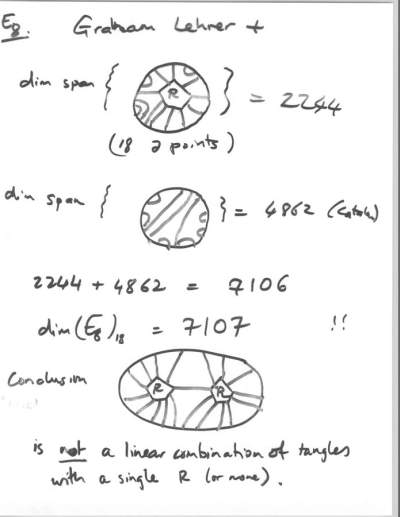 E8. Graham Lehrer +
dim span { R } = 2244
(18 2 points)
dim span { } = 4862 (Catalan)
2244 + 4862 = 7106
dim(E8)18 = 7107 !!
Conclusion R R
is not a linear combination of tangles
with a single R (or none).